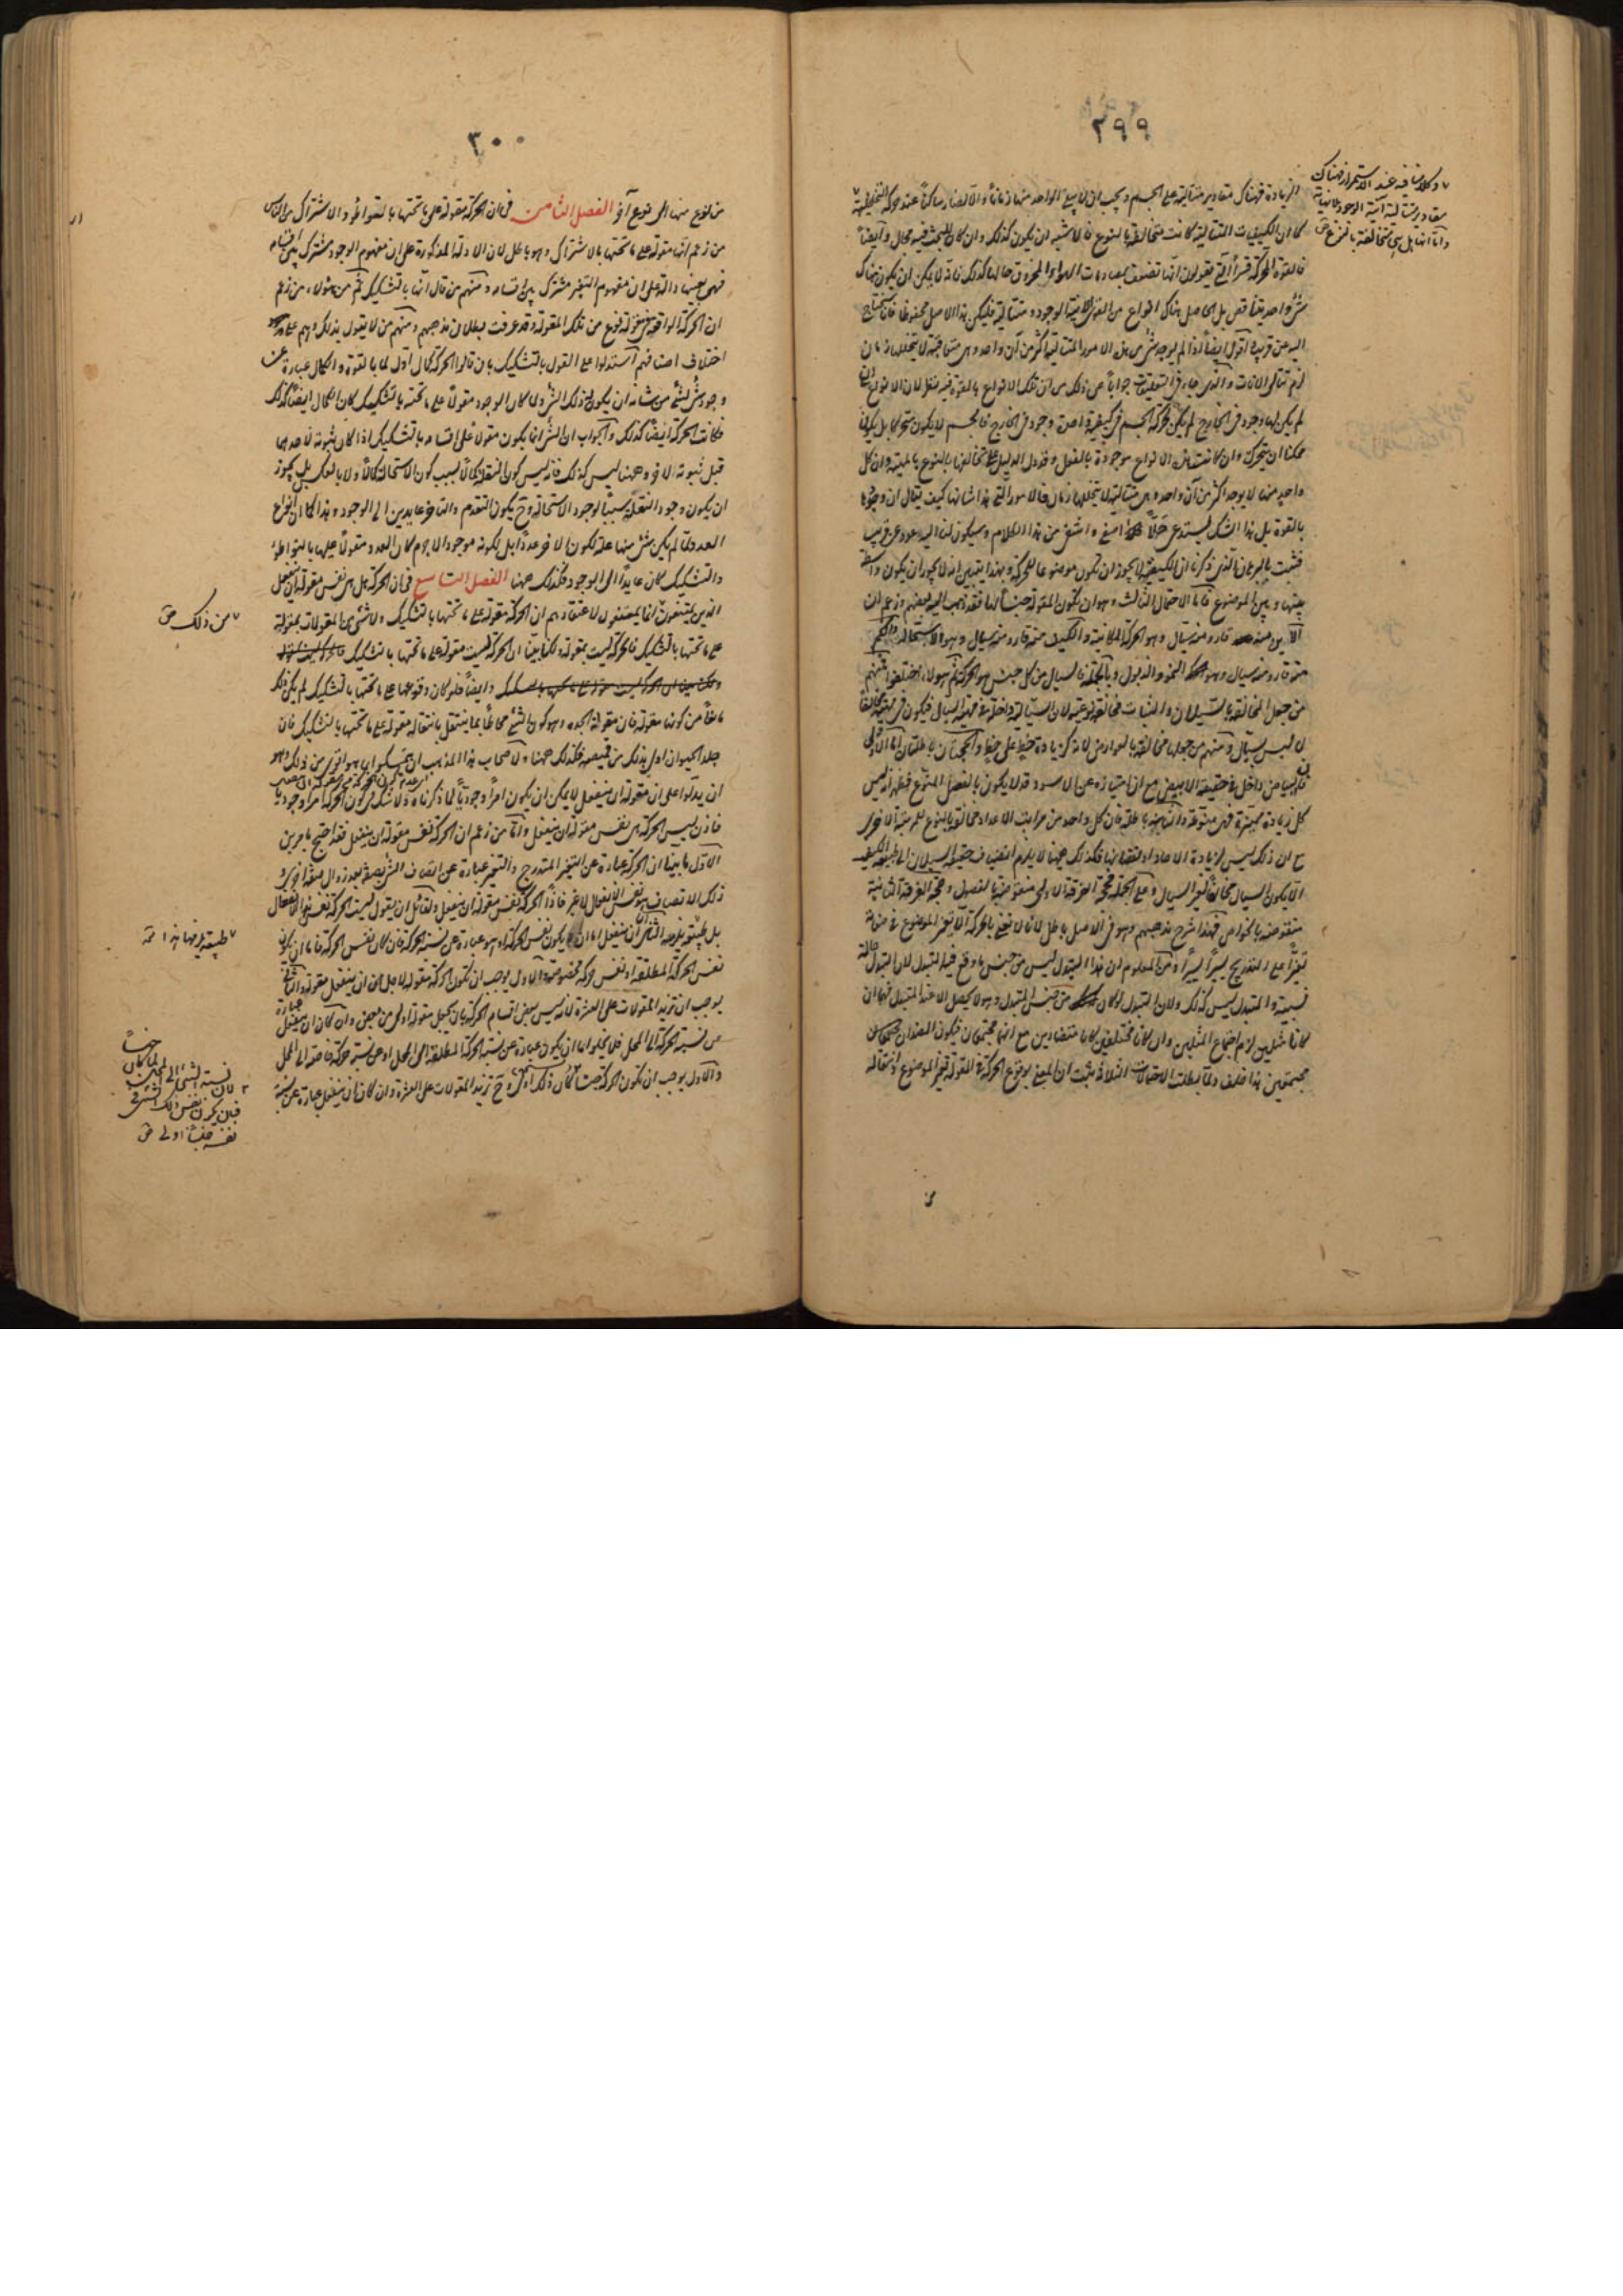 ٢٩٩
الزيادة فهناك مقادير متتالية على الجسم ويجب ان لا يبقى الواحد منها زمانا والا لصار ساكنا عند حركته
كما ان الكيفيات المتتالية كانت متخالفة بالنوع فالاشبه ان يكون كذلك وان كان للبحث فيه مجال وايضا
فالقوة المحركة قسرا التى يقولون انها تضعف بمصادمات الهواء المخروق حالها كذلك فانه لا يمكن ان يكون هناك
شئ واحد يتناقص بل الحاصل هناك انواع من القوى الآنية الوجود متتالية فليكن هذا الاصل محفوظا فانا سنحتاج
اليه عن قريب اقول ايضا اذا لم يوجد شئ من الامور المتتالية اكثر من آن واحد وهى متعاقبة لا يتخللها زمان
لزم تتالى الآنات والذى جاء فى التعليقات جوابا عن ذلك من ان تلك الانواع بالقوة فيه نظر لان الانواع ان
لم يكن لها وجود فى الخارج لم يكن لحركة الجسم فى كيفية واحدة وجود فى الخارج فالجسم لا يكون متحركا بل يكون
ممكنا ان يتحرك وان كانت تلك الانواع موجودة بالفعل وقد دل الدليل على تخالفها بالنوع بالمهية وان كل
واحد منها لا يوجد اكثر من آن واحد وهى متتالية لا يتخللها زمان فالامور التى هذا شانها كيف يقال ان وجودها
بالقوة بل هذا الشك يستدعى حلا اصفى واشفى من هذا الكلام وسيكون لنا اليه عود عن قريب
فثبت بالبرهان الذى ذكرنا ان الكيفية لا يجوز ان تكون موضوعا للحركة وبهذا يتبين انه لا يجوز ان يكون واسطة
بينها وبين الموضوع فاما الاحتمال الثالث وهو ان تكون المقولة جنسا لها فقد ذهب اليه بعضهم وزعم ان
الاين منه قار ومنه سيال وهو الحركة المكانية والكيف منه قار ومنه سيال وهو الاستحالة والكم
منه قار ومنه سيال وهو النمو والذبول وبالجملة فالسيال من كل جنس هو الحركة ثم هولاء اختلفوا فمنهم
من جعل المخالفة بالسيلان والثبات مخالفة نوعية لان السيالية داخلة فى مهية السيال فيكون فى مهيته مخالفا
لما ليس بسيال ومنهم من جعلها مخالفة بالعوارض لانه كزيادة خط على خط والحجتان باطلتان اما الاولى
فالبياض داخل فى حقيقة الابيض مع ان امتيازه عن الاسود قد لا يكون بالفصل المنوع فظهر انه ليس
كل زيادة مميزة فهى منوعة والثانية باطلة فان كل واحد من مراتب الاعداد مخالف بالنوع للمرتبة الاخرى
مع ان ذلك ليس لزيادة الآحاد او نقصانها فكذلك ههنا لا يلزم من انضياف حقيقة السيلان الى طبيعة الكيف
الا يكون السيال مخالفا لغير السيال وعلى الجملة فحجة الفرقة الاولى منقوضة بالفصول وحجة الفرقة الثانية
منقوضة بالخواص فهذا شرح مذهبهم وهو فى الاصل باطل لانا لا نعنى بالحركة الا تغير الموضوع فى صفاته
تغيرا على التدريج يسيرا يسيرا ومن المعلوم ان هذا التبدل ليس من جنس ما وقع فيه التبدل لان التبدل حالة
نسبية والمتبدل ليس كذلك ولان التبدل لو كان من جنس المتبدل وهو لا يحصل الا عند المتبدل فهما ان
كانا مثلين لزم اجتماع المثلين وان كانا مختلفين كانا متضادين مع انهما مجتمعان فيكون الضدان
مجتمعين هذا خلف ولما بطلت الاحتمالات الثلاثة ثبت ان المعنى بوقوع الحركة فى المقولة تغير الموضوع وانتقاله
وانما انها بل هى متخالفة بالنوع
٣٠٠
من نوع منها الى نوع آخر الفصل الثامن فى ان الحركة مقولة على ما تحتها بالتواطؤ والاشتراك من الناس
من زعم انها مقولة على ما تحتها بالاشتراك وهو باطل لان الادلة المذكورة على ان مفهوم الوجود مشترك بين اقسامه
فهى بعينها دالة على ان مفهوم التغير مشترك بين اقسامه ومنهم من قال انها بالتشكيك ثم من هولاء من زعم
ان الحركة الواقعة فى مقولة نوع من تلك المقولة وقد عرفت بطلان مذهبهم ومنهم من لا يقول بذلك وهم على
اختلاف اصنافهم استدلوا على القول بالتشكيك بان قالوا الحركة كمال اول لما بالقوة والكمال عبارة عن
وجود شئ لشئ من شانه ان يكون له ذلك الشئ ولما كان الوجود مقولا على ما تحته بالتشكيك كان الكمال ايضا كذلك
فكانت الحركة ايضا كذلك والجواب ان الشئ انما يكون مقولا على اقسامه بالتشكيك اذا كان ثبوته لاحدهما
قبل ثبوته للآخر وههنا ليس كذلك فانه ليس كون النقلة كمالا بسبب كون الاستحالة كمالا ولا بالعكس بل يجوز
ان يكون وجود النقلة سببا لوجود الاستحالة وح يكون التقدم والتاخر عايدين الى الوجود وهذا كما ان انواع
العدد لما لم يكن شئ منها علة لكون الآخر عددا بل لكونه موجودا لا جرم كان العدد مقولا عليها بالتواطؤ
والتشكيك كان عايدا الى الوجود فكذلك ههنا الفصل التاسع فى ان الحركة هل هى نفس مقولة ان ينفعل
الذين يمتنعون انما يمتنعون لاعتقادهم ان الحركة مقولة على ما تحتها بالتشكيك ولا شئ من المقولات بمقولة
على ما تحتها بالتشكيك فالحركة ليست بمقولة ولكنا بينا ان الحركة ليست مقولة على ما تحتها بالتشكيك
وايضا فلو كان وقوعها على ما تحتها بالتشكيك لم يكن ذلك
مانعا من كونها مقولة فان مقولة الجدة وهو كون الشئ محاطا بما ينتقل بانتقاله مقولة على ما تحتها بالتشكيك فان
جلد الحيوان اولى بذلك من قميصه فكذلك ههنا ولاصحاب هذا المذهب ان يتمسكوا بما هو اقوى من ذلك وهو
ان يدلوا على ان مقولة ان ينفعل لا يمكن ان يكون امرا وجوديا لما ذكرناه ولا شك فى كون الحركة امرا وجوديا
فاذن ليس الحركة هى نفس مقولة ان ينفعل واما من زعم ان الحركة نفس مقولة ان ينفعل فقد احتج بامرين
الاول ما بينا ان الحركة عبارة عن التغير المتدرج والتغير عبارة عن اتصاف الشئ بصفة بعد زوال صفة اخرى و
ذلك الاتصاف هو نفس الانفعال لا غير فاذا الحركة نفس مقولة ان ينفعل ولقائل ان يقول ليست الحركة نفس الانفعال
تغس الحركة المطلقة او نفس حركة مخصوصة والاول يوجب ان تكون الحركة مقولة لاجل ان ان ينفعل مقولة والثانى
يوجب ان تزيد المقولات على العشرة لانه ليس بعض اقسام الحركة بان يجعل مقولة اولى من بعض وان كان ان ينفعل عبارة
عن نسبة الحركة الى المحل فلا يخلو اما ان يكون عبارة عن نسبة الحركة المطلقة الى المحل او عن نسبة حركة خاصة الى المحل
والاول يوجب ان تكون الحركة جنسا لما كان ذلك اولى وح تزيد المقولات على العشرة وان كان ان ينفعل عبارة عن نسبة
من ذلك
لان نسبة الشئ الى المحل لما كان جنسا
فبان يكون نفس ذلك الشئ فى
نفسه جنسا اولى